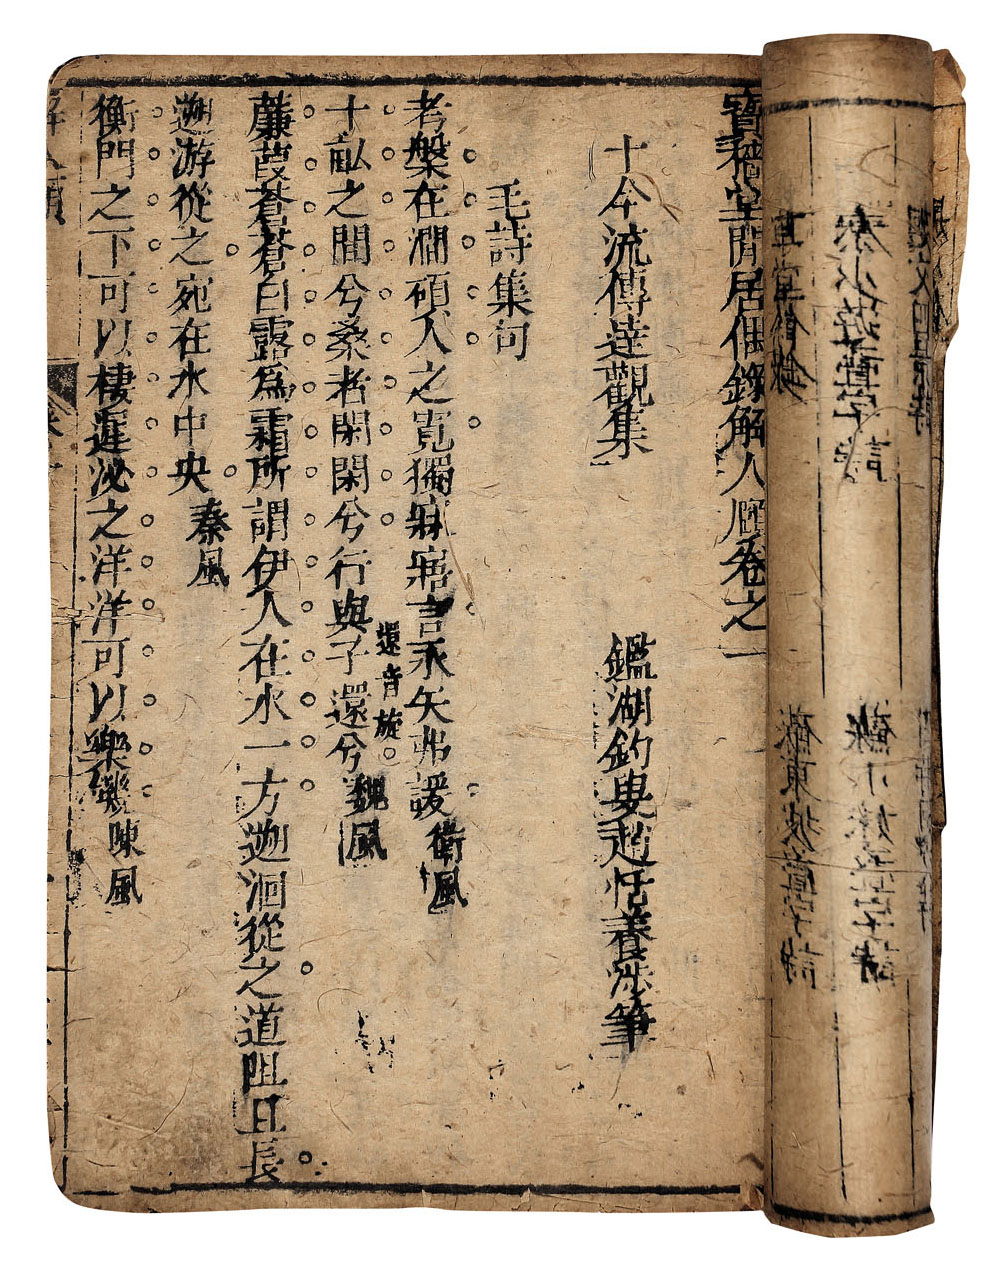 秦少游疊字詩
蘇小妹疊字詩
蘇東坡疊字詩
寶堂閒居偶錄解人頤卷之一
十今流傳達觀集　鑑湖釣叟趙恬養涉筆
毛詩集句
考槃在澗碩人之寬獨寐寤言永矢弗諼衛風
十畝之間兮桑者閑閑兮行與子還兮還音旋魏風
蒹葭蒼蒼白露為霜所謂伊人在水一方遡洄從之道阻且長
遡游從之宛在水中央秦風
衡門之下可以棲遲泌之洋洋可以樂饑陳風